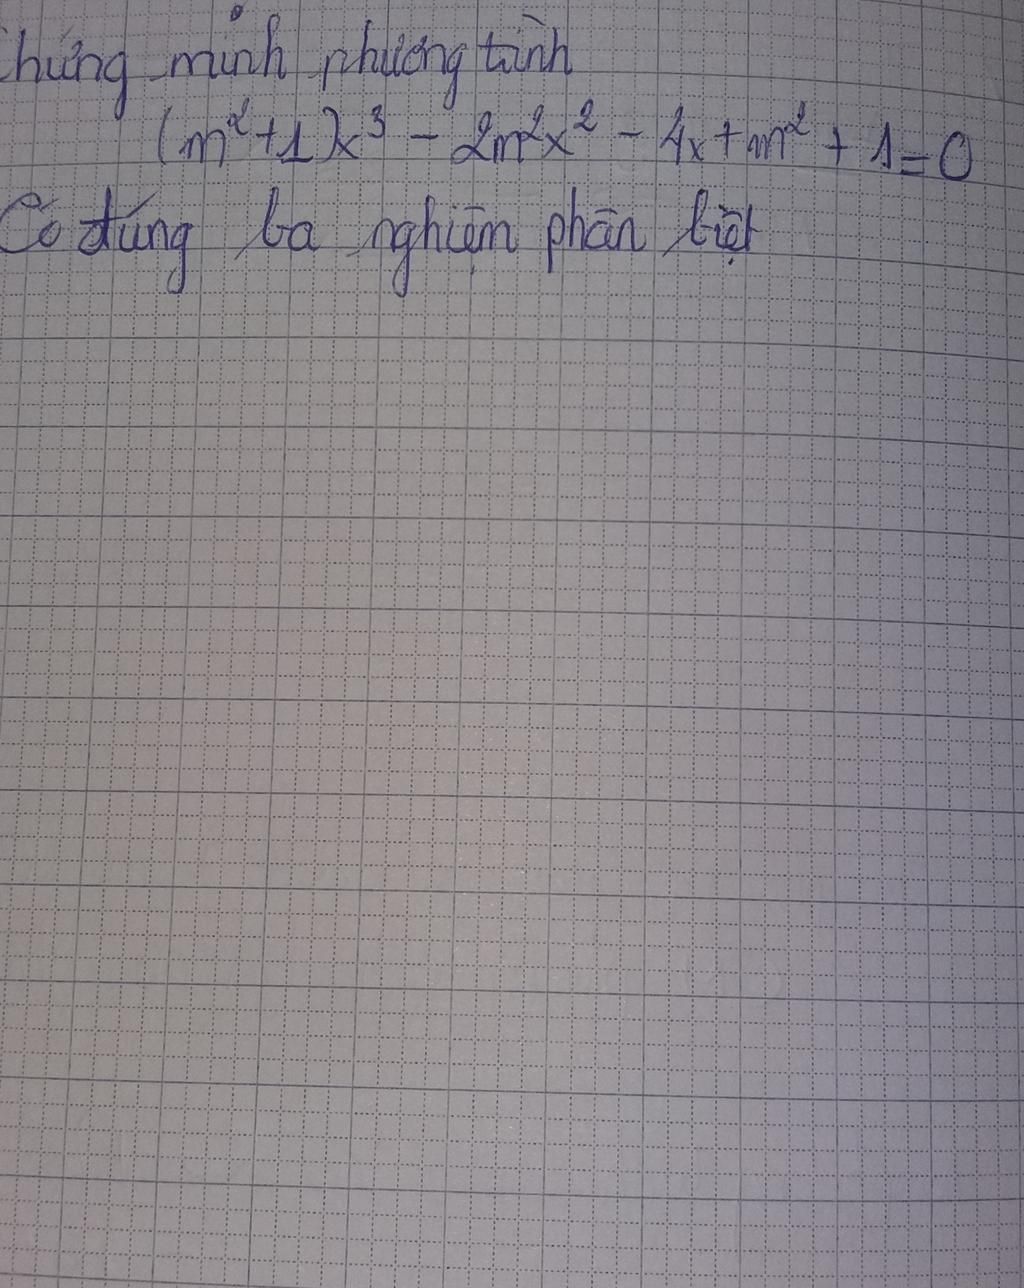 Chứng minh phương trình
(m²+1)x³ - 2m²x² - 4x + m² + 1 = 0
Có đúng ba nghiệm phân biệt